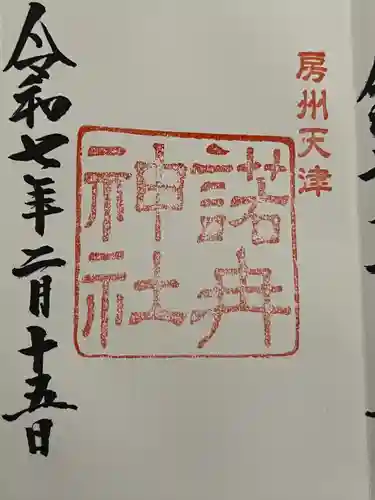 房州天津
諾冉
神社
令和七年二月十五日